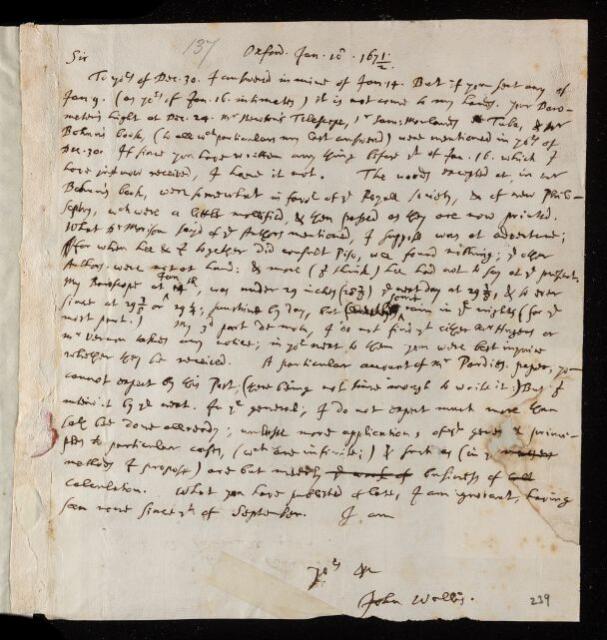 137
Oxford. Jan. 18. 1671/2.
Sir
To yors of Dec. 30. I answered in mine of Jan. 14. But if you sent any of
Jan. 9. (as yors of Jan. 16. intimates) it is not come to my hands. Your Baro-
meters hight at Dec. 29. Mr Newtons Telescope, Sr Sam: Morlands Tube, & Mr
Bohuns book, (to all wch particulars my last answered) were mentioned in yors of
Dec. 30. If since you have written any thing before yt of Jan. 16. which I
have just now received, I have it not. The words excepted at, in Mr
Bohuns book, were somewhat in favor of ye Royall Society, & of new Philo-
sophy, wch were a little mollified, & then passed as they are now printed.
What Dr Morison sayd of ye Authors mentioned, I suppose was at adventure;
for when hee & I together did consult Piso, wee found nothing; ye other
Authors were not at hand: & more (I think) hee had not to say at ye present.
My Baroscope at Jan. 14th, was under 29 inches (28 7/8) ye next day at 29 3/8, & so ever
since at 29 or 29 1/4; sunshine by day, but some rain in ye nights (for ye
most part.) My 3d part de motu, I do not find yt either Mr Hugens or
Mr Vernon takes any notice; in yor next to them you were best inquire
whether they be received. A particular account of Mr Pardies paper, you
cannot expect by this Post, (there being not time enough to write it.) But I
intend it by ye next. In ye general; I do not expect much more than
hath been done allready; unlesse more application, of ye general principles
to particular cases, (wch are infinite;) & such as (in ye
methods I propose) are but meerly ye work of business of
calculation. What you have published of late, I am ignorant, having
seen none since yt of September. I am
Yors &c
John Wallis.
239